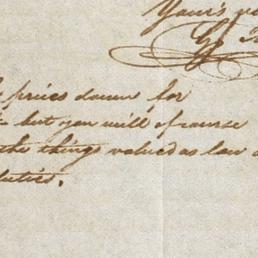 Your's
prices down for
but you will of course
the things valued as low
duties.